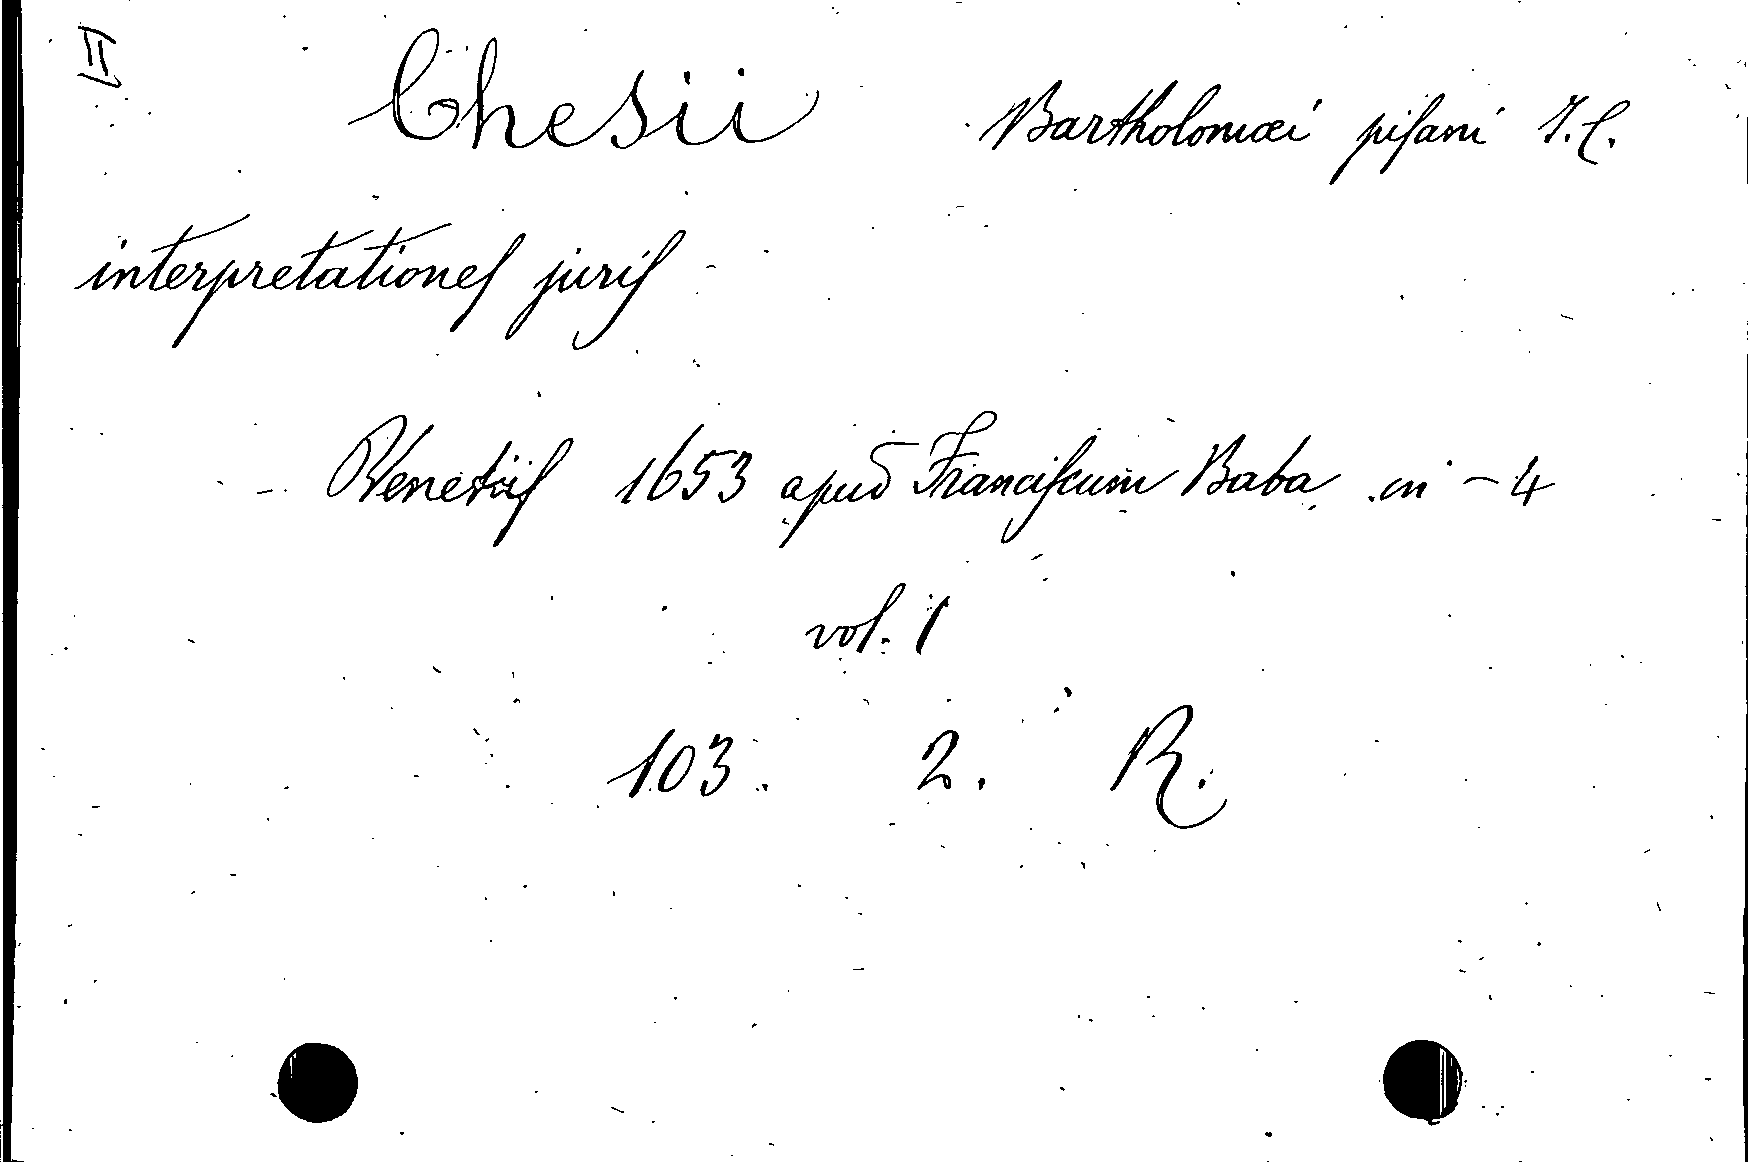 II
Chesii Bartholomæi pisani J.C.
interpretationes juris
Venetiis 1653 apud Franciscum Baba in-4
vol. 1
103. 2. R.